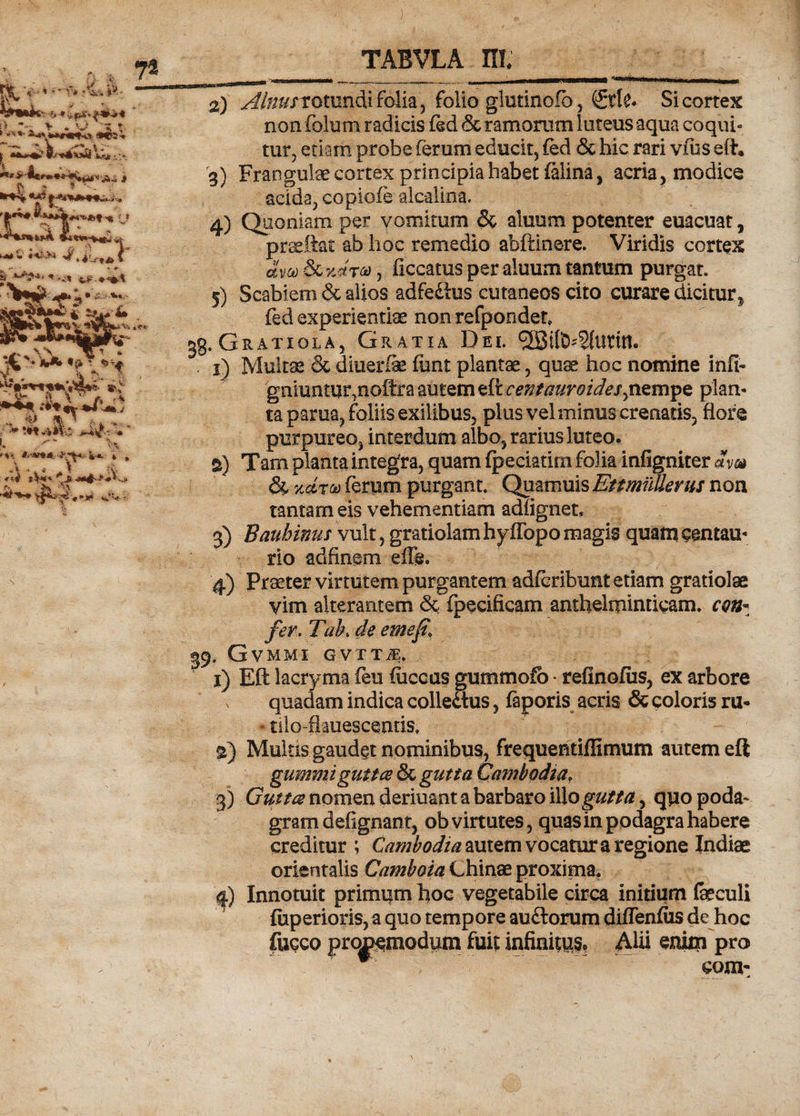 72
TABVLA III.
2) Alnus rotundi folia, folio glutinoſo, Erle. Si cortex
non ſolum radicis ſed & ramorum luteus aqua coqui-
tur, etiam probe ferum educit, ſed & hic rari vſus eſt.
3) Frangulæ cortex principia habet ſalina, acria, modice
acida, copioſe alcalina.
4) Quoniam per vomitum & aluum potenter euacuat,
præſtat ab hoc remedio abſtinere. Viridis cortex
ἄνω & κάτω, ſiccatus per aluum tantum purgat.
5) Scabiem & alios adfectus cutaneos cito curare dicitur,
ſed experientiæ non reſpondet.
38. GRATIOLA, GRATIA DEI. Wild-Aurin.
1) Multæ & diuerſæ ſunt plantæ, quæ hoc nomine inſi-
gniuntur, noſtra autem eſt centauroides, nempe plan-
ta parua, foliis exilibus, plus vel minus crenatis, flore
purpureo, interdum albo, rarius luteo.
2) Tam planta integra, quam ſpeciatim folia inſigniter ἄνω
& κάτω ſerum purgant. Quamuis Ettmüllerus non
tantam eis vehementiam adſignet.
3) Bauhinus vult, gratiolam hyſſopo magis quam centau-
rio adfinem eſſe.
4) Præter virtutem purgantem adſcribunt etiam gratiolæ
vim alterantem & ſpecificam anthelminticam. con-
fer. Tab. de emeſi.
39. GVMMI GVTTÆ.
1) Eſt lacryma ſeu ſuccus gummoſo-reſinoſus, ex arbore
quadam indica collectus, ſaporis acris & coloris ru-
tilo-flauescentis.
2) Multis gaudet nominibus, frequentiſſimum autem eſt
gummi guttæ & gutta Cambodia.
3) Guttæ nomen deriuant a barbaro illo gutta, quo poda-
gram deſignant, ob virtutes, quas in podagra habere
creditur; Cambodia autem vocatur a regione Indiæ
orientalis Camboia Chinæ proxima.
4) Innotuit primum hoc vegetabile circa initium ſæculi
ſuperioris, a quo tempore auctorum diſſenſus de hoc
ſucco propemodum fuit infinitus. Alii enim pro
com-